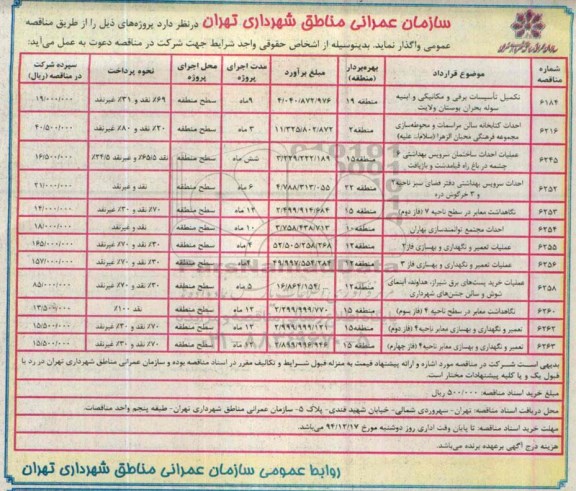 سازمان عمرانی مناطق شهرداری تهران درنظر دارد پروژه‌های ذیل را از طریق مناقصه
عمومی واگذار نماید. بدینوسیله از اشخاص حقوقی واجد شرایط جهت شرکت در مناقصه دعوت به عمل می‌آید:
شماره مناقصه موضوع قرارداد بهره‌بردار (منطقه) مبلغ برآورد مدت اجرای پروژه محل اجرای پروژه نحوه پرداخت سپرده شرکت در مناقصه (ریال)
۶۱۸۴ تکمیل تأسیسات برقی و مکانیکی و ابنیه سوله بحران بوستان ولایت منطقه ۱۹ ۴/۰۴۰/۸۷۲/۹۷۶ ۹ماه سطح منطقه ۶۹٪ نقد و ۳۱٪ غیرنقد ۱۹/۰۰۰/۰۰۰
۶۲۱۶ احداث کتابخانه سالن مراسمات و محوطه‌سازی مجموعه فرهنگی محبان الزهرا (سلام‌ا... علیه) منطقه۲ ۱۱/۳۲۵/۸۰۲/۸۷۲ ۳ ماه سطح منطقه ۲۰٪ نقد و ۸۰٪ غیرنقد ۴۰/۵۰۰/۰۰۰
۶۲۴۵ عملیات احداث ساختمان سرویس بهداشتی ۶ چشمه در باغ راه فیامدشت و بازیافت منطقه۱۵ ۳/۲۲۹/۲۲۲/۱۸۹ شش ماه سطح منطقه ۶۵/۵٪ نقد و ۳۴/۵٪ غیرنقد ۱۶/۵۰۰/۰۰۰
۶۲۵۲ احداث سرویس بهداشتی دفتر فضای سبز ناحیه۲ و ۳ خرگوش دره منطقه ۲۲ ۴/۷۸۸/۳۱۳/۰۵۵ ۶ ماه سطح منطقه نقد و غیرنقد ۲۱/۰۰۰/۰۰۰
۶۲۵۳ نگاهداشت معابر در سطح ناحیه ۷ (فاز دوم) منطقه ۱۵ ۲/۴۹۹/۹۱۴/۶۸۴ ۱۲ ماه سطح منطقه ۷۰٪ نقد و ۳۰٪ غیرنقد ۱۴/۰۰۰/۰۰۰
۶۲۵۴ احداث مجتمع توانمندسازی بهاران منطقه۱۰ ۳/۷۵۸/۴۳۸/۷۱۳ ۱۰ ماه سطح منطقه نقد و غیرنقد ۱۸/۰۰۰/۰۰۰
۶۲۵۵ عملیات تعمیر و نگهداری و بهسازی فاز۲ منطقه۱۲ ۵۲/۵۰۵/۲۵۸/۲۶۸ ۲ ماه سطح منطقه نقد و غیرنقد ۱۶۵/۰۰۰/۰۰۰
۶۲۵۶ عملیات تعمیر و نگهداری و بهسازی فاز ۳ منطقه۱۲ ۴۹/۹۹۷/۵۵۲/۲۸۴ سطح منطقه نقد و غیرنقد ۱۵۷/۰۰۰/۰۰۰
۶۲۵۸ عملیات خرید پست‌های برق شیراز، هداوند، آبنمای شوش و سالن جشن‌های شهرداری منطقه۱۲ ۵ ماه سطح منطقه ۳۰٪ نقد و ۷۰٪ غیرنقد ۸۵/۰۰۰/۰۰۰
۶۲۶۰ نگاهداشت معابر در سطح ناحیه ۴ (فاز سوم) منطقه ۱۵ ۲/۲۹۹/۹۹۹/۷۷۰ ۱۲ ماه سطح منطقه نقد ۱۰۰٪ ۱۳/۵۰۰/۰۰۰
۶۲۶۲ تعمیر و نگهداری و بهسازی معابر ناحیه۴ (فاز دوم) منطقه ۱۵ ۱۲ ماه سطح منطقه ۷۰٪ نقد و ۳۰٪ غیرنقد ۱۵/۵۰۰/۰۰۰
۶۲۶۳ تعمیر و نگهداری و بهسازی معابر ناحیه۴ (فاز چهارم) منطقه ۱۵ ۱۲ ماه سطح منطقه ۷۰٪ نقد و ۳۰٪ غیرنقد ۱۵/۵۰۰/۰۰۰
بدیهی است شرکت در مناقصه مورد اشاره و ارائه پیشنهاد قیمت به منزله قبول شرایط و تکالیف مقرر در اسناد مناقصه بوده و سازمان عمرانی مناطق شهرداری تهران در رد یا
قبول یک و یا کلیه پیشنهادات مختار است.
مبلغ خرید اسناد مناقصه: ۵۰۰/۰۰۰ ریال
محل دریافت اسناد مناقصه: تهران- سهروردی شمالی- خیابان شهید قندی- پلاک ۵- سازمان عمرانی مناطق شهرداری تهران- طبقه پنجم واحد مناقصات.
مهلت خرید اسناد مناقصه: تا پایان وقت اداری روز دوشنبه مورخ ۹۴/۱۲/۱۷ می‌باشد.
هزینه درج آگهی برعهده برنده می‌باشد.
روابط عمومی سازمان عمرانی مناطق شهرداری تهران